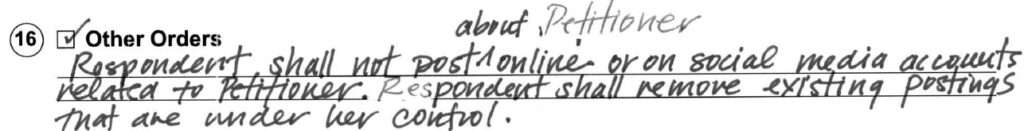 about Petitioner
16 ☑ Other Orders
Respondent shall not post ^ online or on social media accounts
related to Petitioner. Respondent shall remove existing postings
that are under her control.